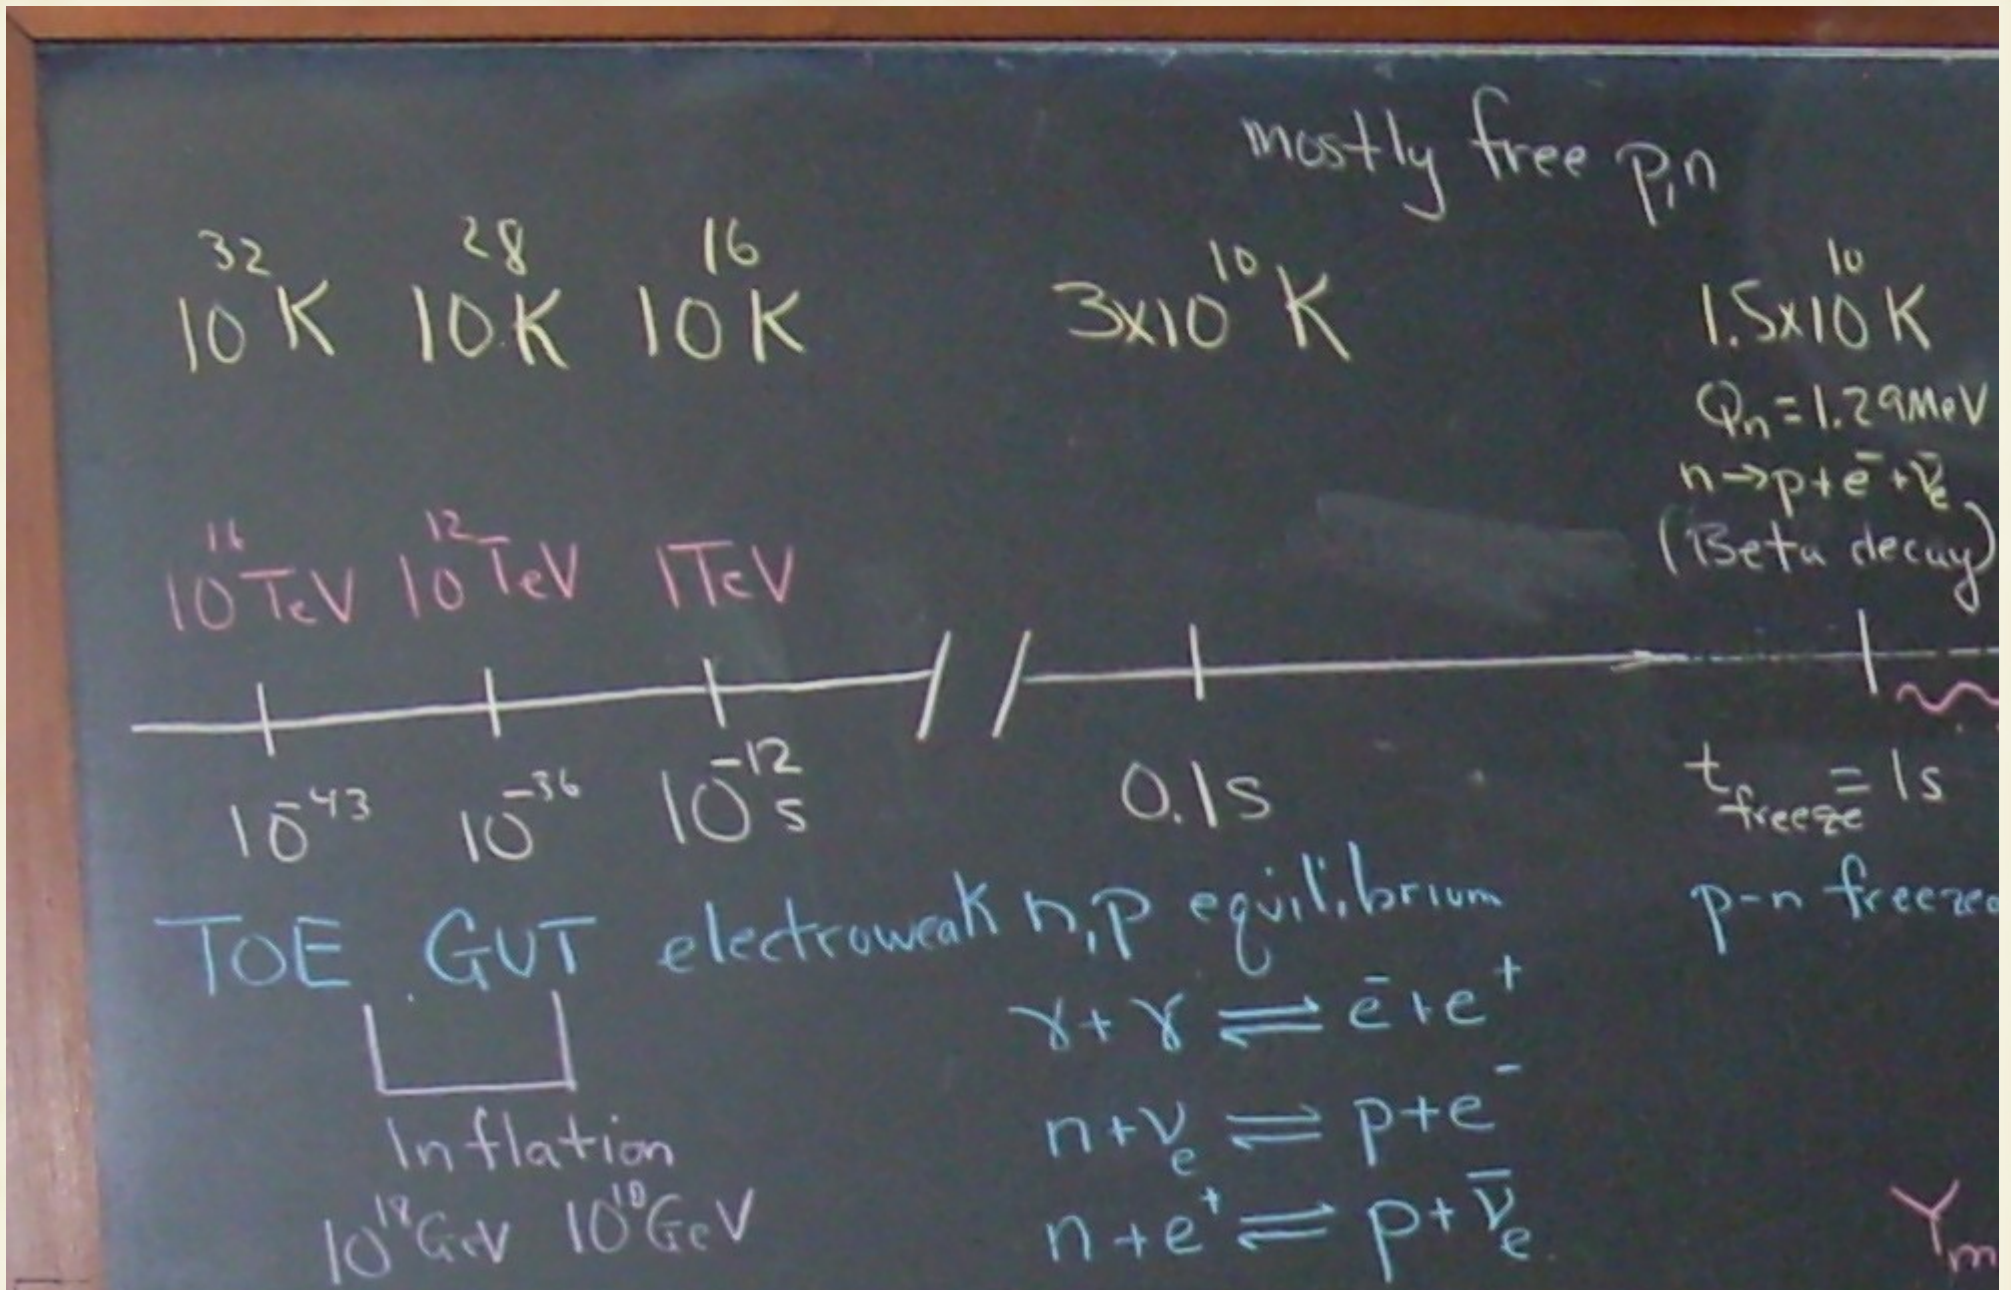 mostly free p,n
10³²K 10²⁸K 10¹⁶K 3x10¹⁰K 1.5x10¹⁰K
Qn = 1.29MeV
n→p+e⁻+ν̄e
(Beta decay)
10¹⁶TeV 10¹²TeV 1TeV
10⁻⁴³ 10⁻³⁶ 10⁻¹²s 0.1s t freeze = 1s
TOE GUT electroweak n,p equilibrium p-n freezeo
γ+γ ⇌ e⁻+e⁺
n+νe ⇌ p+e⁻
Inflation
n+e⁺ ⇌ p+ν̄e
10¹⁸GeV 10¹⁰GeV
Ym